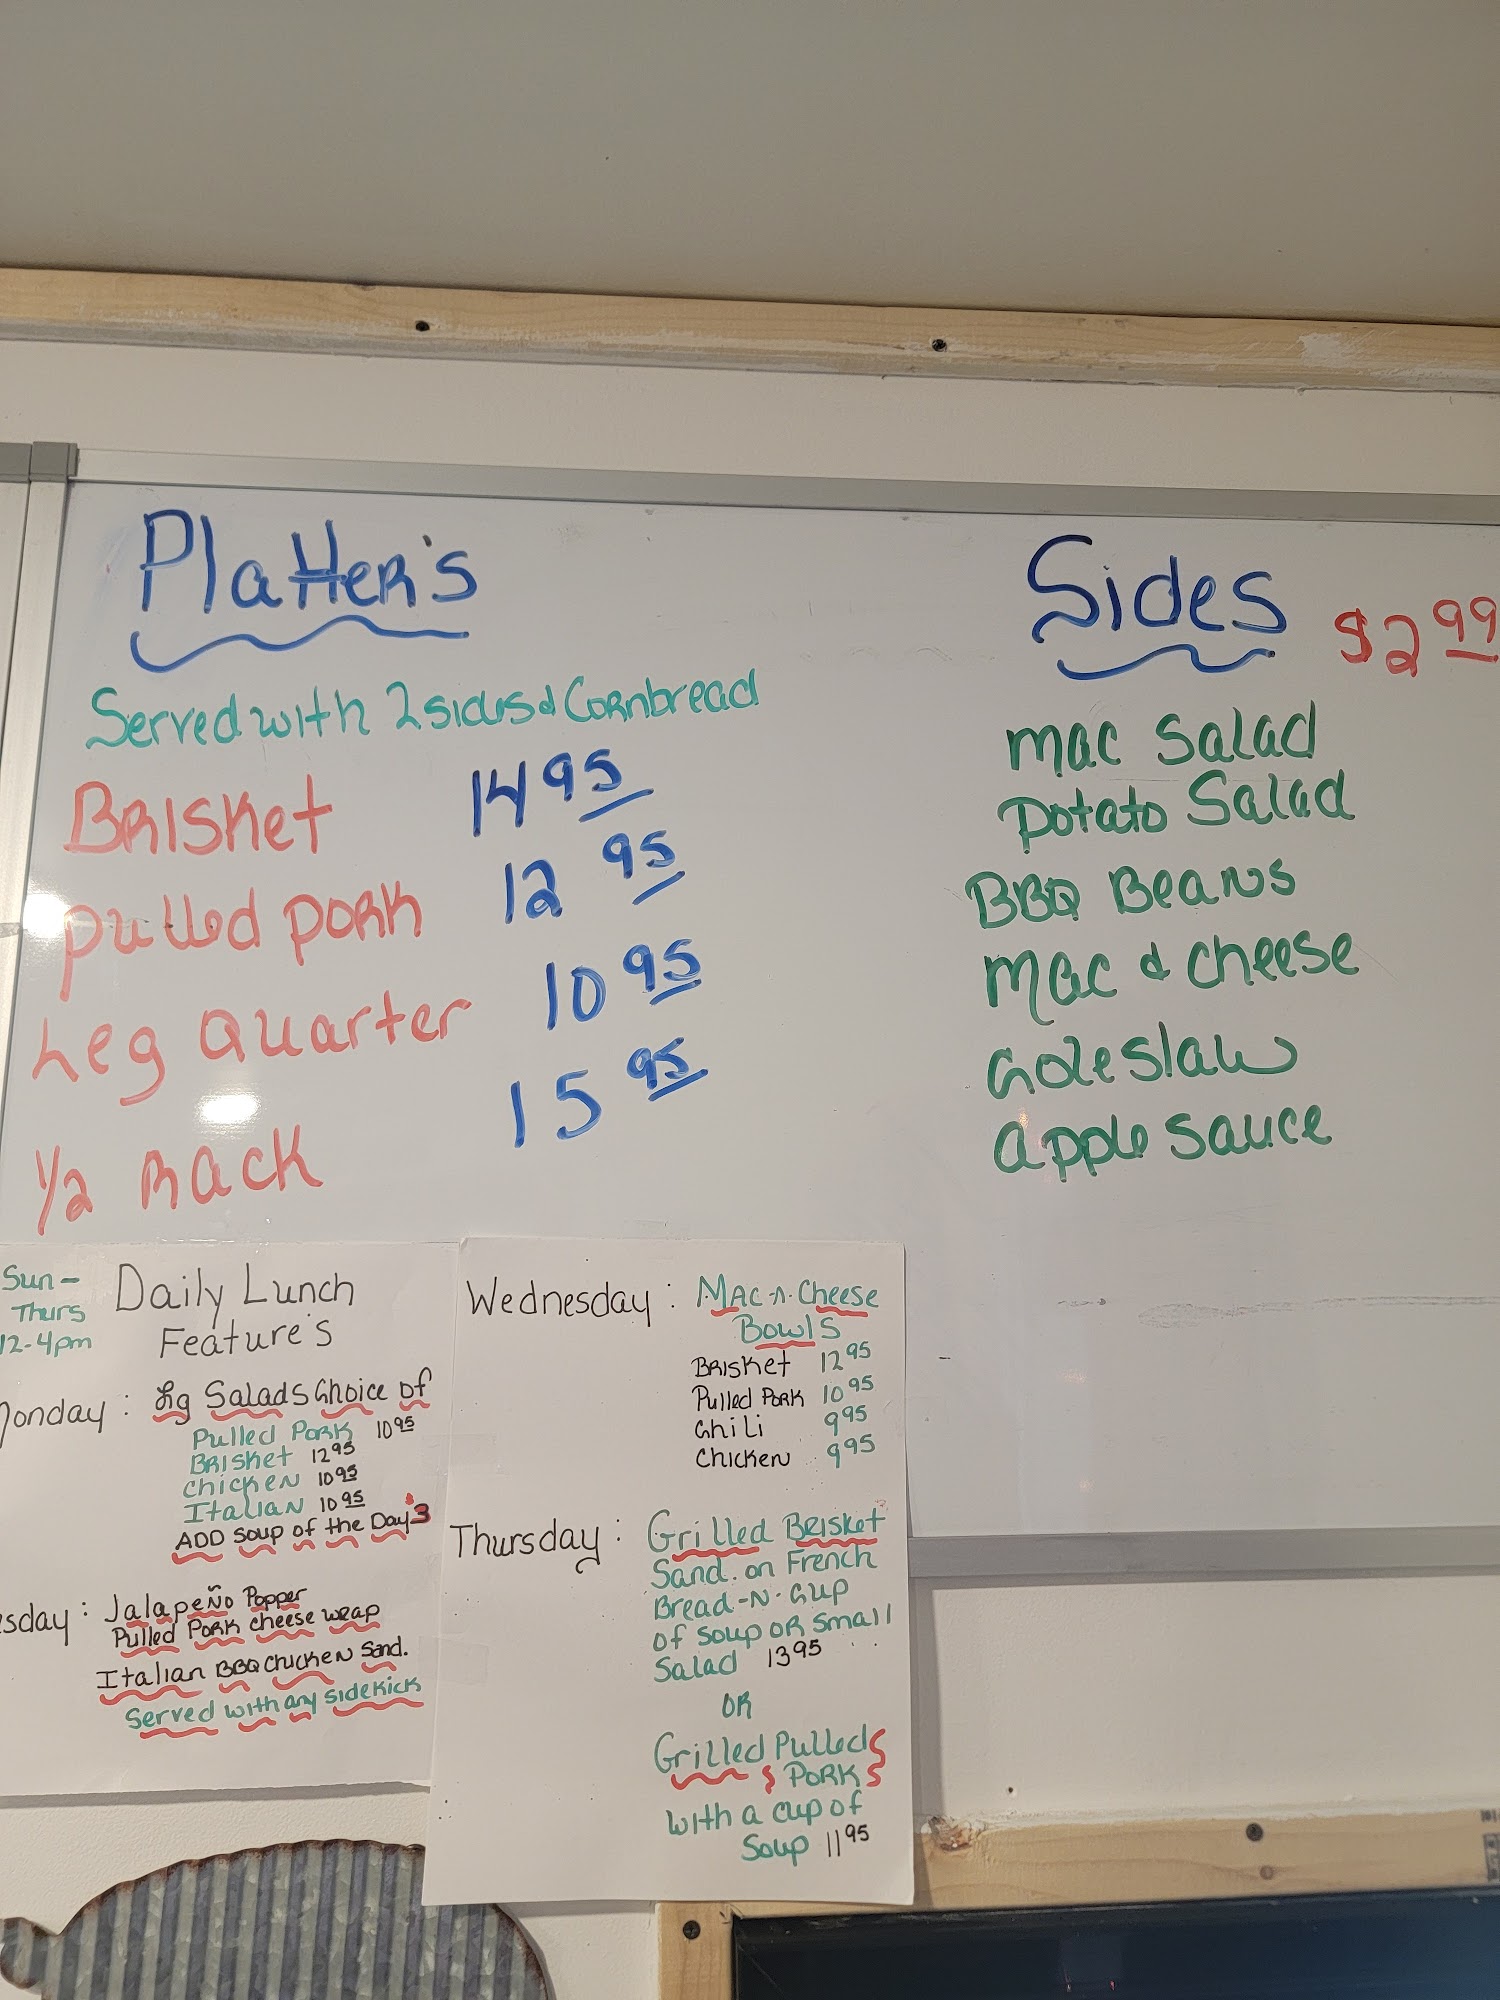 Platter's
Served with 2 sides & Cornbread
Brisket 14 95
Pulled Pork 12 95
Leg Quarter 10 95
1/2 Rack 15 95
Sides $2 99
Mac Salad
Potato Salad
BBQ Beans
Mac & Cheese
Coleslaw
Apple Sauce
Sun -
Thurs
12-4pm
Daily Lunch
Feature's
Monday : Lg Salads Choice of
Pulled Pork 10 95
Brisket 12 95
Chicken 10 95
Italian 10 95
ADD Soup of the Day $3
sday : Jalapeño Popper
Pulled Pork cheese wrap
Italian BBQ Chicken Sand.
Served with any sidekick
Wednesday : Mac-n-Cheese
Bowls
Brisket 12 95
Pulled Pork 10 95
Chili 9 95
Chicken 9 95
Thursday : Grilled Brisket
Sand. on French
Bread -N- Cup
of soup or small
Salad 13 95
OR
Grilled Pulled
Pork
with a cup of
Soup 11 95